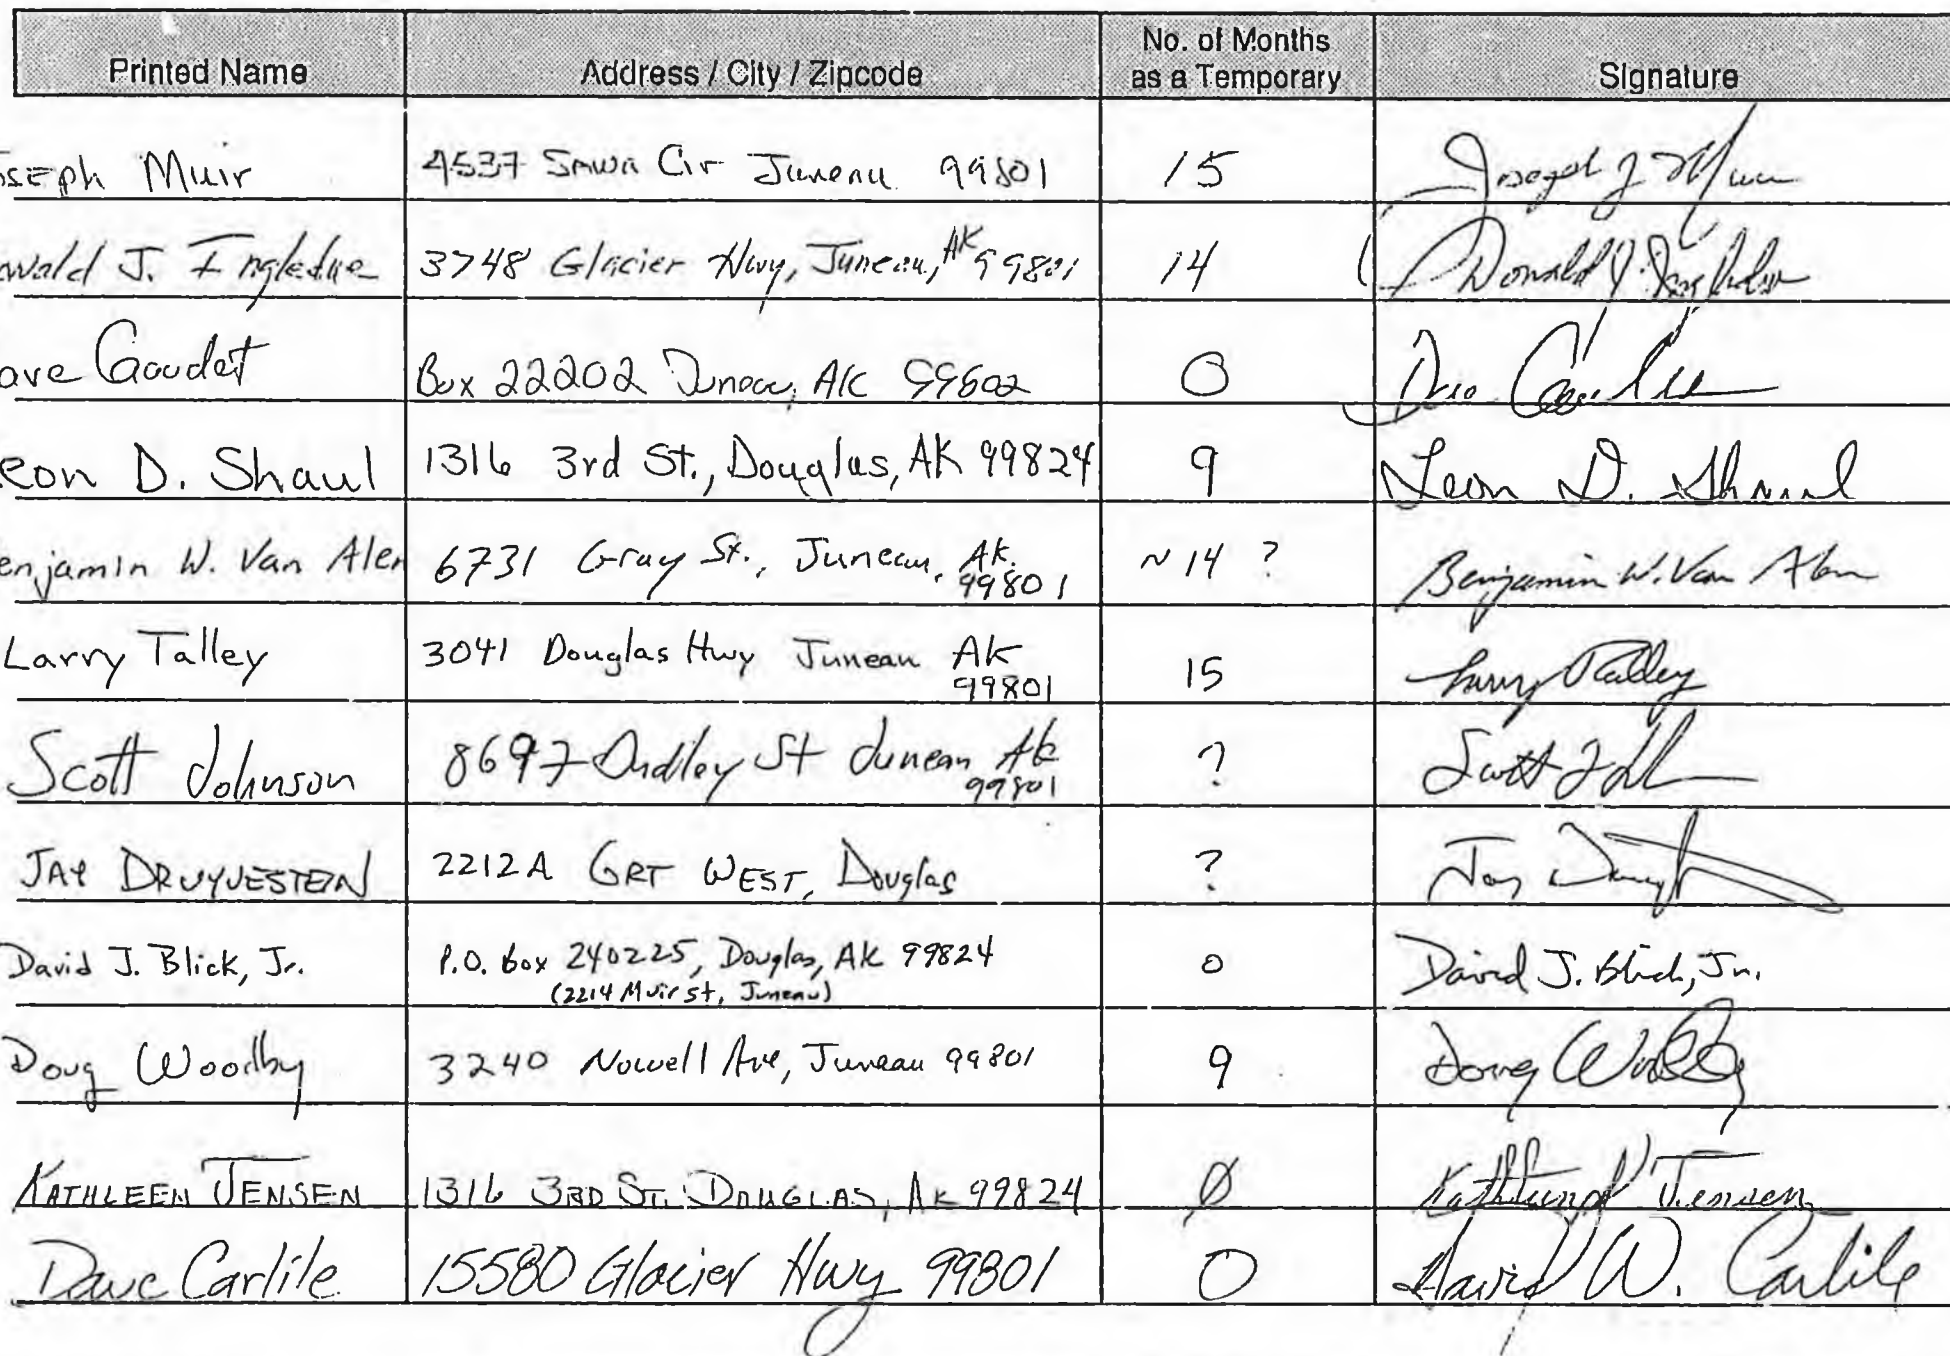 Printed Name Address / City / Zipcode No. of Months as a Temporary Signature
oseph Muir 4537 Sawa Cir Juneau 99801 15 Joseph J Muir
onald J. Ingledue 3748 Glacier Hwy, Juneau, AK 99801 14 Donald J. Ingledue
ave Gaudet Box 22202 Juneau, AK 99802 0
eon D. Shaul 1316 3rd St., Douglas, AK 99824 9 Leon D. Shaul
enjamin W. Van Alen 6731 Gray St., Juneau, Ak. 99801 ~14 ? Benjamin W. Van Alen
Larry Talley 3041 Douglas Hwy Juneau AK 99801 15 Larry Talley
Scott Johnson 8697 Dudley St Juneau Ak 99801 ? Scott
JAY DRUYVESTEIN 2212A GRT WEST, Douglas ? Jay
David J. Blick, Jr. P.O. box 240225, Douglas, AK 99824 0 David J. Blick, Jr.
(2214 Muir St, Juneau)
Doug Woodby 3240 Nowell Ave, Juneau 99801 9 Doug Woodby
KATHLEEN JENSEN 1316 3RD ST. DOUGLAS, AK 99824 Ø Kathleen Jensen
Dave Carlile 15580 Glacier Hwy 99801 0 David W. Carlile